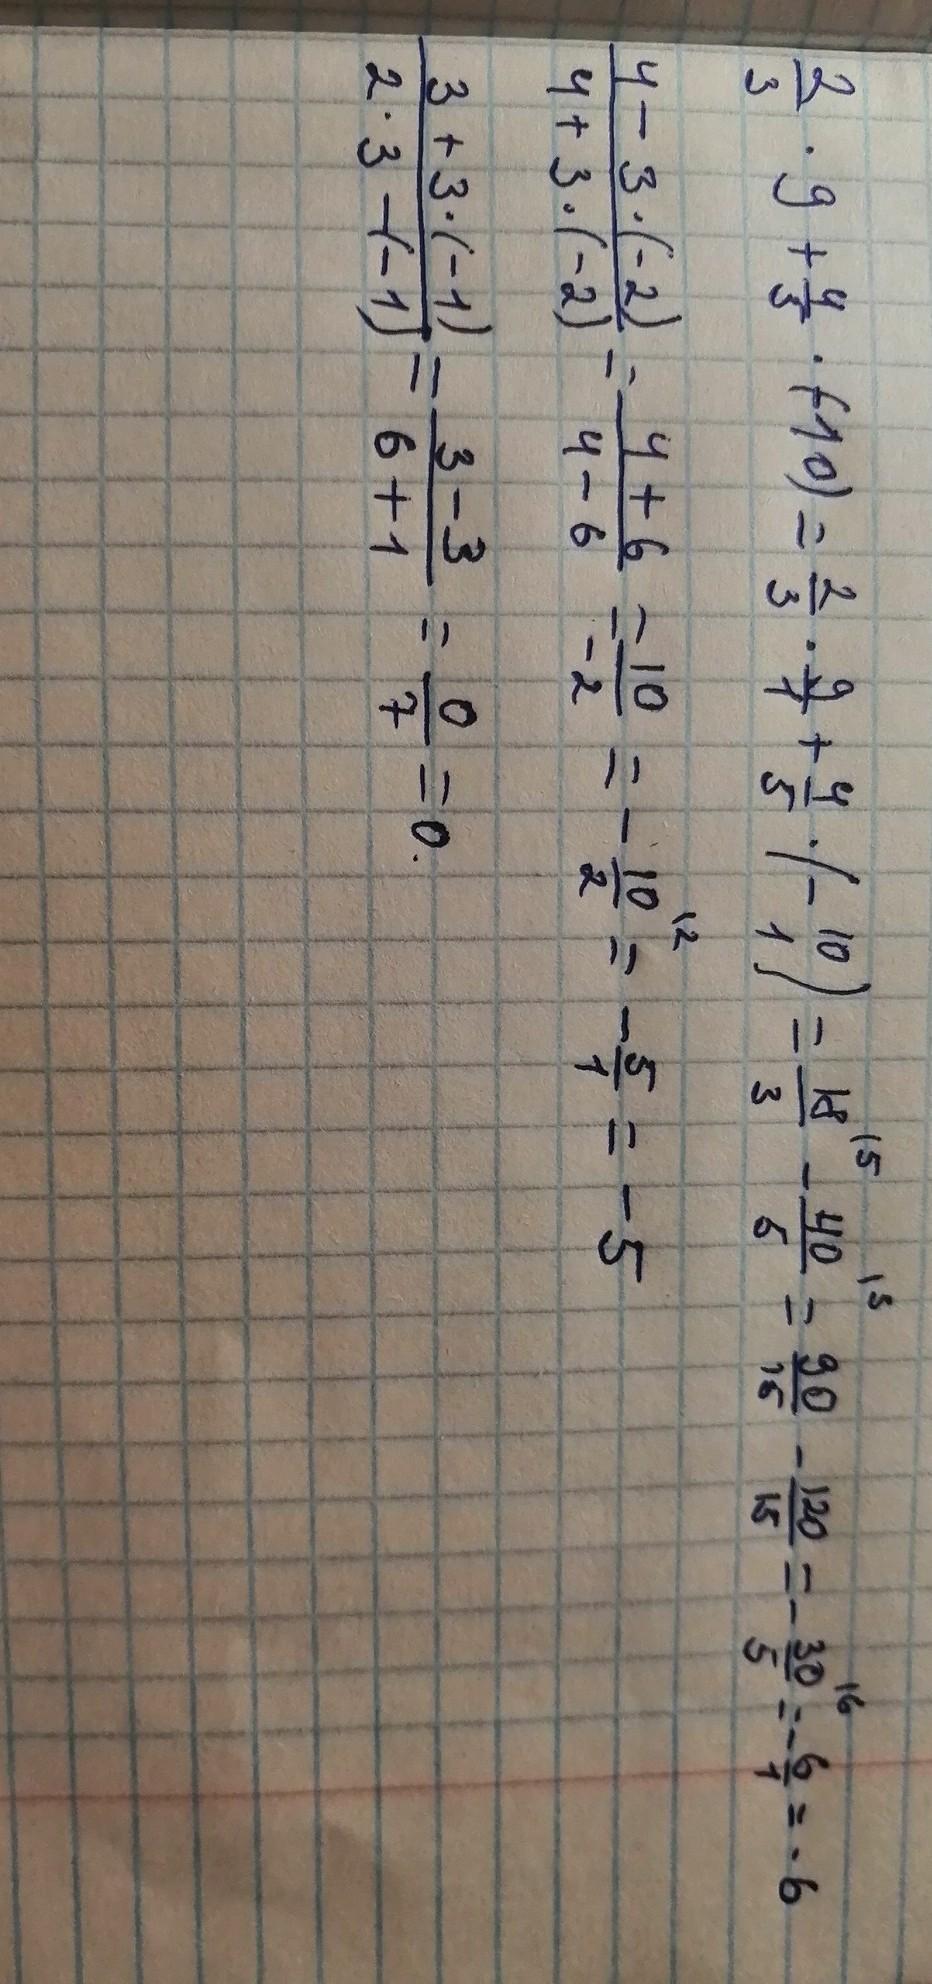 2/3 · 9 + 4/5 · (-10) = 2/3 · 9/1 + 4/5 · (- 10/1) = 18/3 |5 - 40/5 |3 = 90/15 - 120/15 = - 30/5 |6 = - 6/1 = - 6
4 - 3 · (-2) / 4 + 3 · (-2) = 4 + 6 / 4 - 6 = 10/-2 = - 10/2 |2 = - 5/1 = - 5
3 + 3 · (-1) / 2 · 3 - (-1) = 3 - 3 / 6 + 1 = 0/7 = 0.